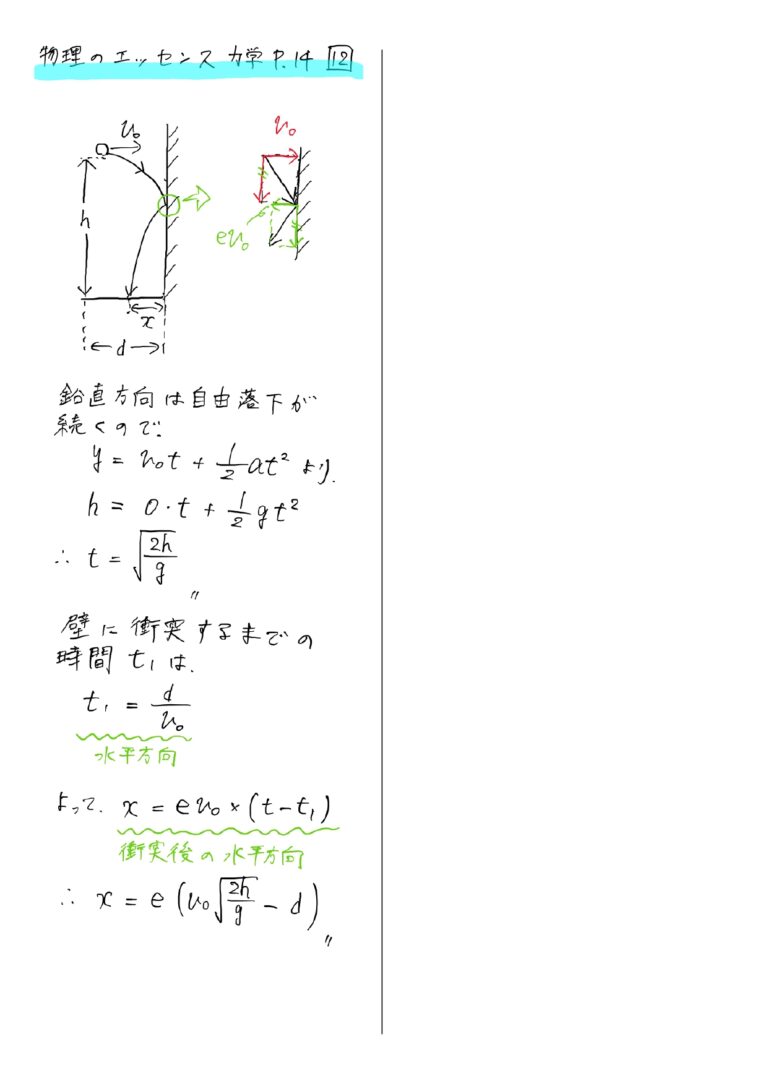 物理のエッセンス 力学 P.14 12
v₀
h
x
d
v₀
ev₀
鉛直方向は自由落下が
続くので、
y = v₀t + 1/2 at² より、
h = 0・t + 1/2 gt²
∴ t = √(2h/g) 〃
壁に衝突するまでの
時間 t₁ は、
t₁ = d/v₀
水平方向
よって、x = ev₀ × (t - t₁)
衝突後の水平方向
∴ x = e(v₀√(2h/g) - d) 〃